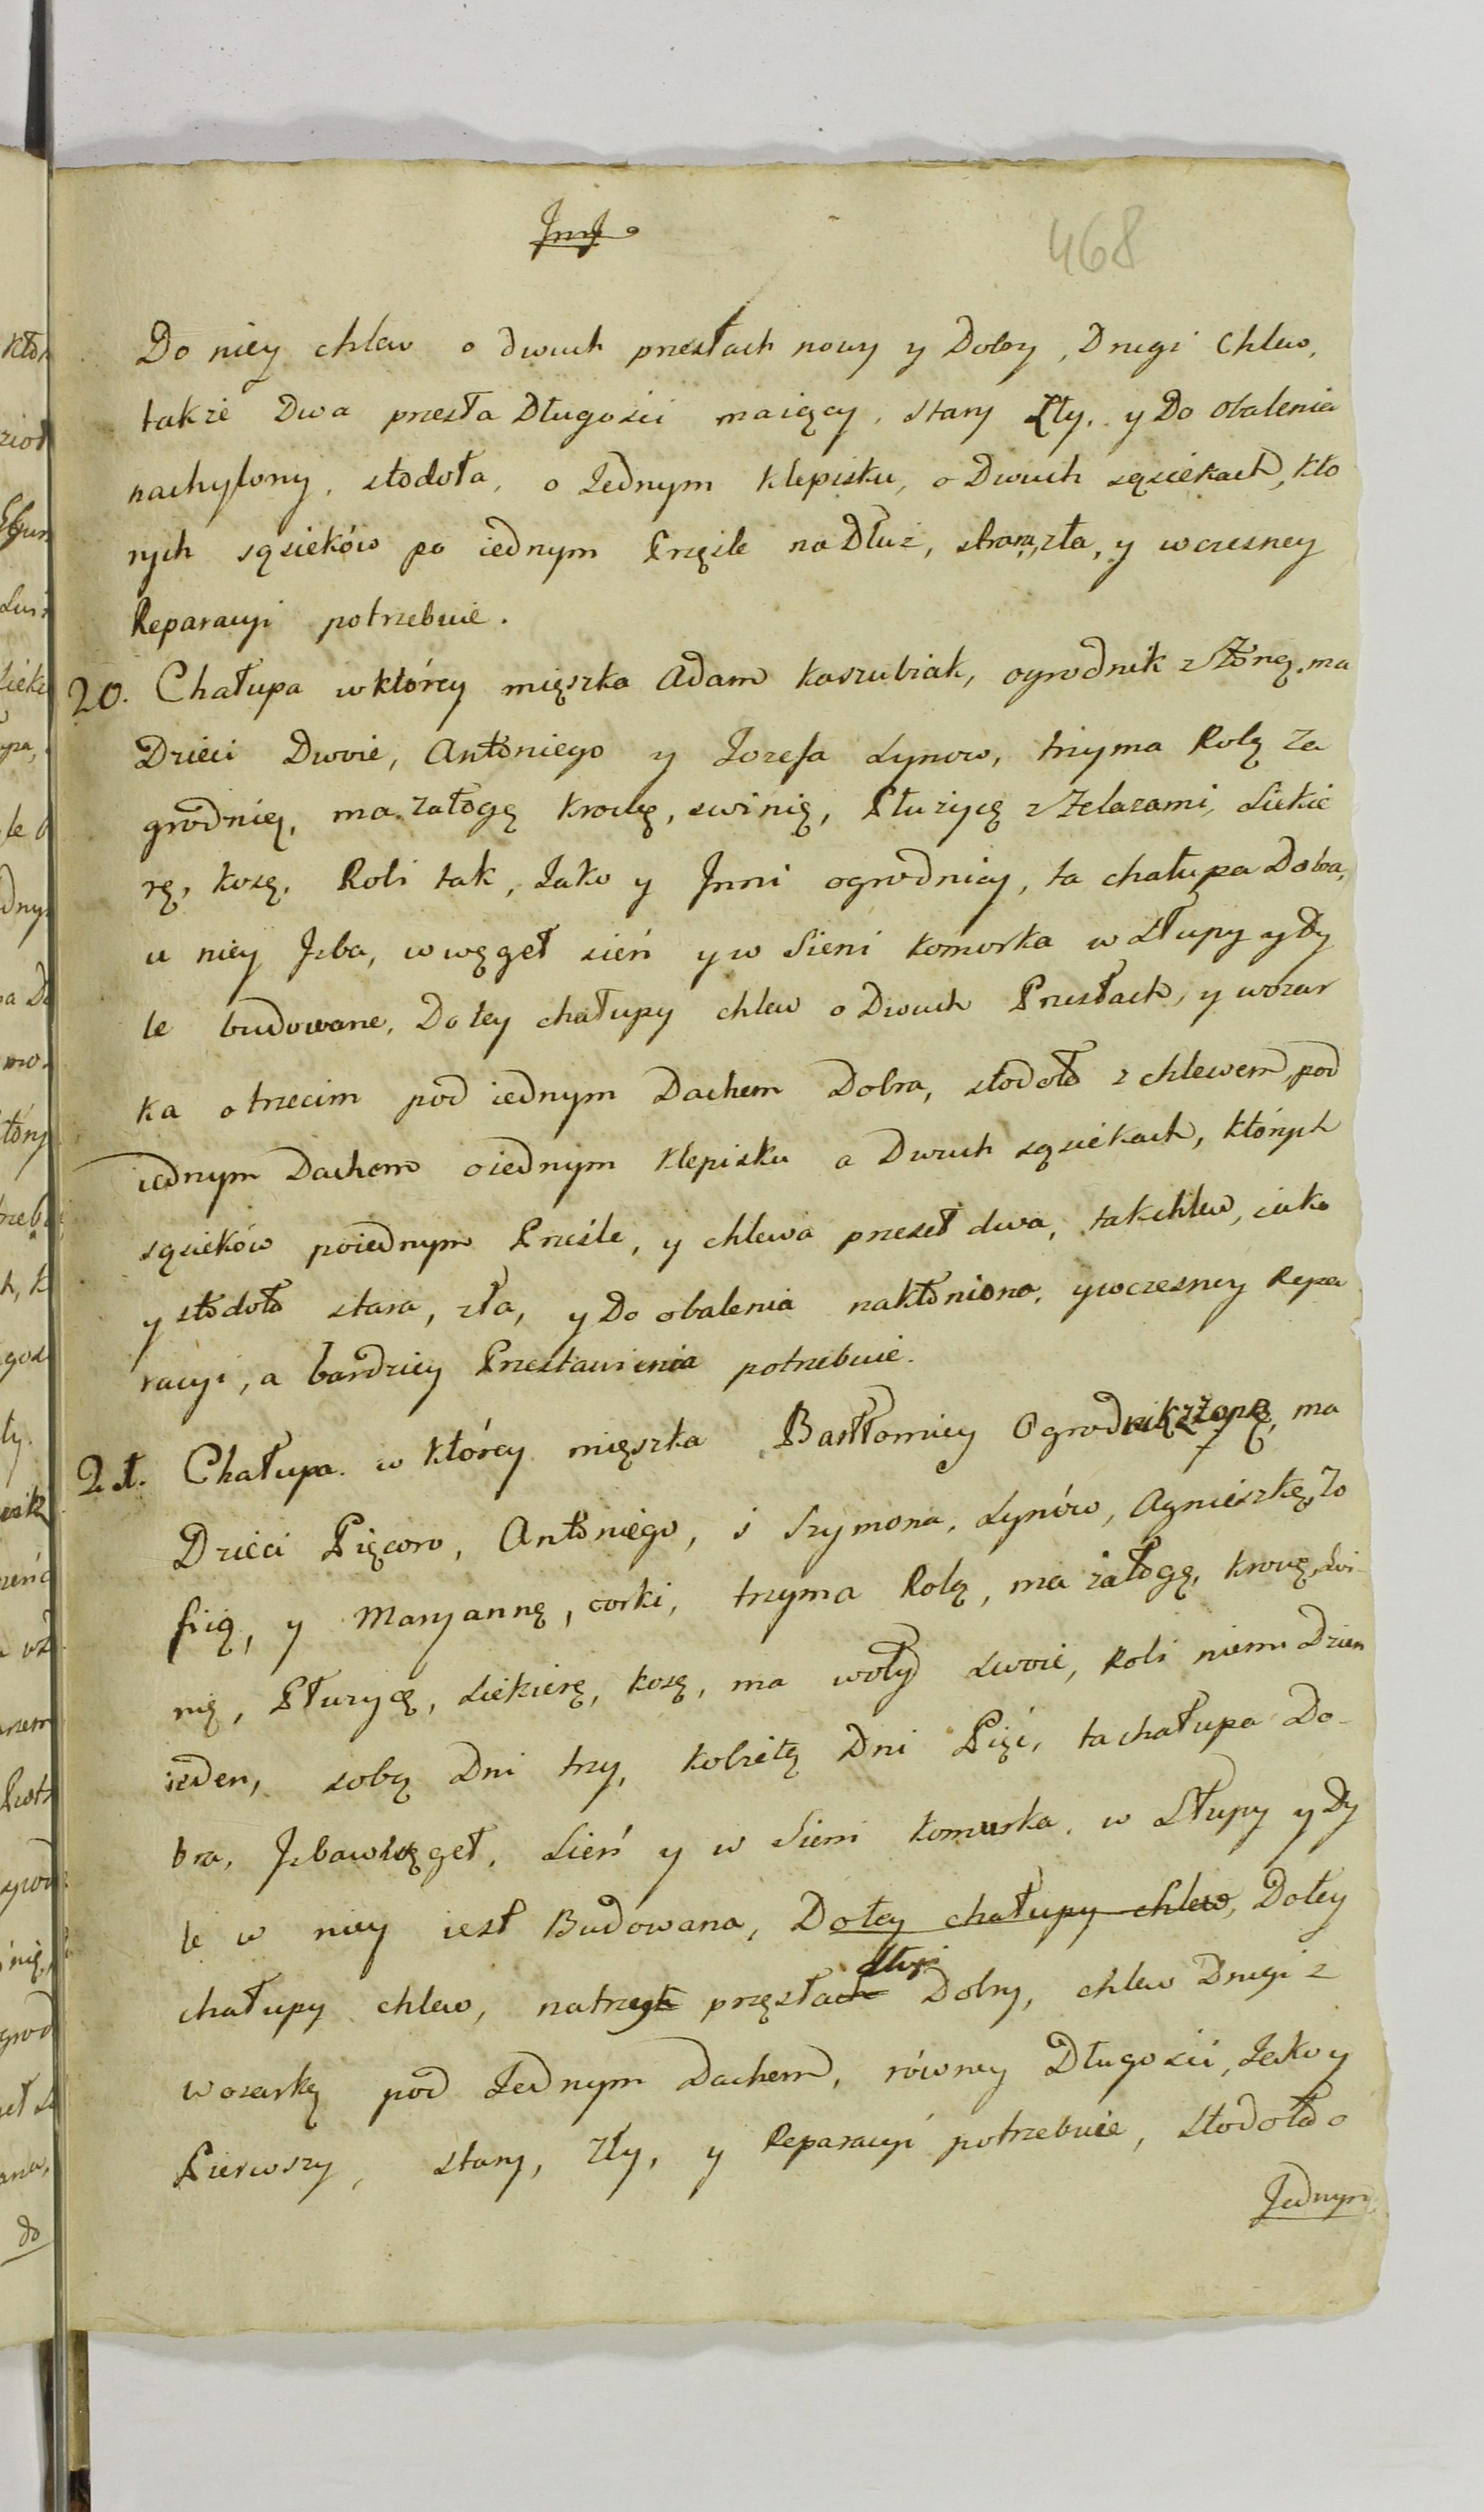 468
Do niey chlew o dwuch przesłach nowy y Dobry, Drugi Chlew,
także Dwa przesła Długości maiący, stary Zły, y Do obalenia
nachylony, stodoła, o Jednym klepisku, o Dwuch sąsiekach, któ
rych sąsieków po iednym Przęśle na Dłuż, stara, zła, y wczesney
Reparacyi potrzebuie.
20. Chałupa w którey mięszka Adam Kaszubiak, ogrodnik z Żoną, ma
Dzieci Dwoie, Antoniego y Jozefa synow, trzyma Rolą za
grodnią, ma załogę krowę, swinię, Płużycę z Żelazami, Siekie
rę, kosę, Roli tak, Jako y Jnni ogrodnicy, ta chałupa Dobra,
u niey Jzba, w węgeł sień y w Sieni komorka w Słupy y Dy
le budowane, Do tey chałupy chlew o Dwuch Przesłach, y wozar
ka o trzecim pod iednym Dachem Dobra, stodoła z chlewem, pod
iednym Dachem o iednym klepisku a Dwuch sąsiekach, których
sąsieków po iednym Prześle, y chlewa przeseł dwa, tak chlew, iako
y stodoła stara, zła, y Do obalenia nakłoniona, y wczesney Repa
racyi, a bardziey Przestawienia potrzebuie.
21. Chałupa w którey mięszka Bartłomiey Ogrodnik z żoną, ma
Dzieci Pięcoro, Antoniego, i Szymona, synów, Agnieszkę, Zo
fiią, y Maryannę, corki, trzyma Rolą, ma załogę, krowę, swi-
nię, Płużycę, siekierę, kosę, ma woły swoie, Roli niemu Dzien
ieden, sobą Dni trzy, kobietą Dni Pięć, ta chałupa Do-
bra, Jzba w węgeł, Sień y w Sieni komurka, w Słupy y Dy
le w niey iest Budowana, Do tey chałupy chlew, Do tey
chałupy chlew, na trzy przęsła długi Dobry, chlew Drugi z
wozarką pod Jednym Dachem, równey Długości, Jako y
Pierwszy, stary, zły, y Reparacyi potrzebuie, stodoła o
Jednym